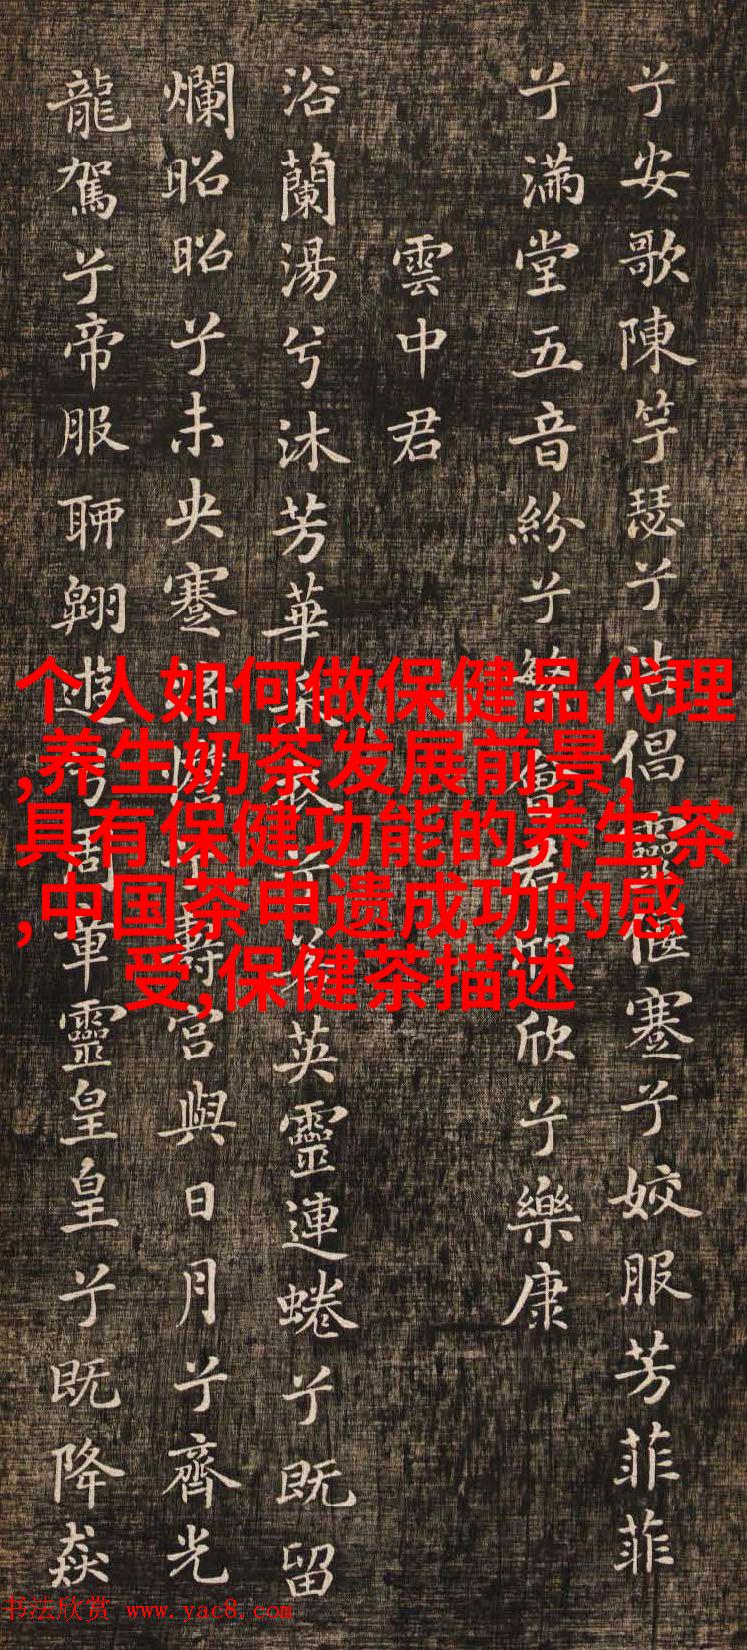 兮安歌陳竽瑟兮浩倡靈偃蹇兮姣服芳菲菲
兮滿堂五音紛兮繁會君欣欣兮樂康
雲中君
浴蘭湯兮沐芳華采衣兮若英靈連蜷兮既留
爛昭昭兮未央蹇將憺兮壽宮與日月兮齊光
龍駕兮帝服聊翱遊兮周章靈皇皇兮既降猋
个人如何做保健品代理
,养生奶茶发展前景,
具有保健功能的养生茶
,中国茶申遗成功的感
受,保健茶描述
书法欣赏 www.yac8.com